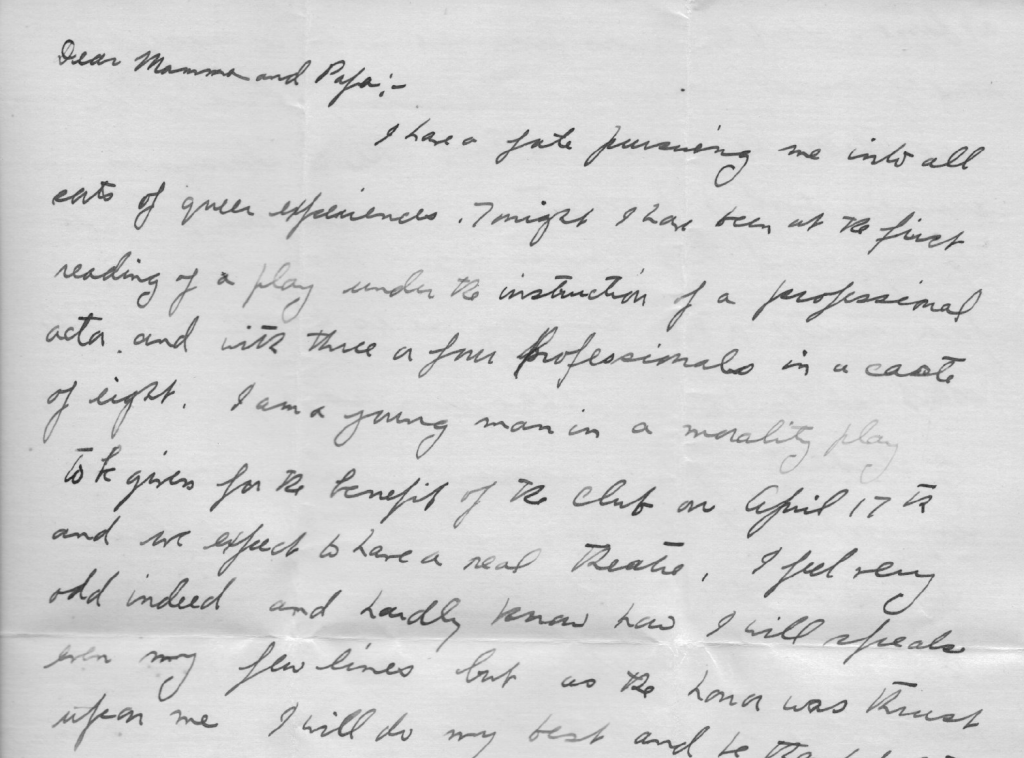 Dear Mamma and Papa;-
I have a fate pursuing me into all
sorts of queer experiences. Tonight I have been at the first
reading of a play under the instruction of a professional
actor and with three or four professionals in a caste
of eight. I am a young man in a morality play
to be given for the benefit of the club on April 17th
and we expect to have a real theatre. I feel very
odd indeed and hardly know how I will speak
even my few lines but as the honor was thrust
upon me I will do my best and be